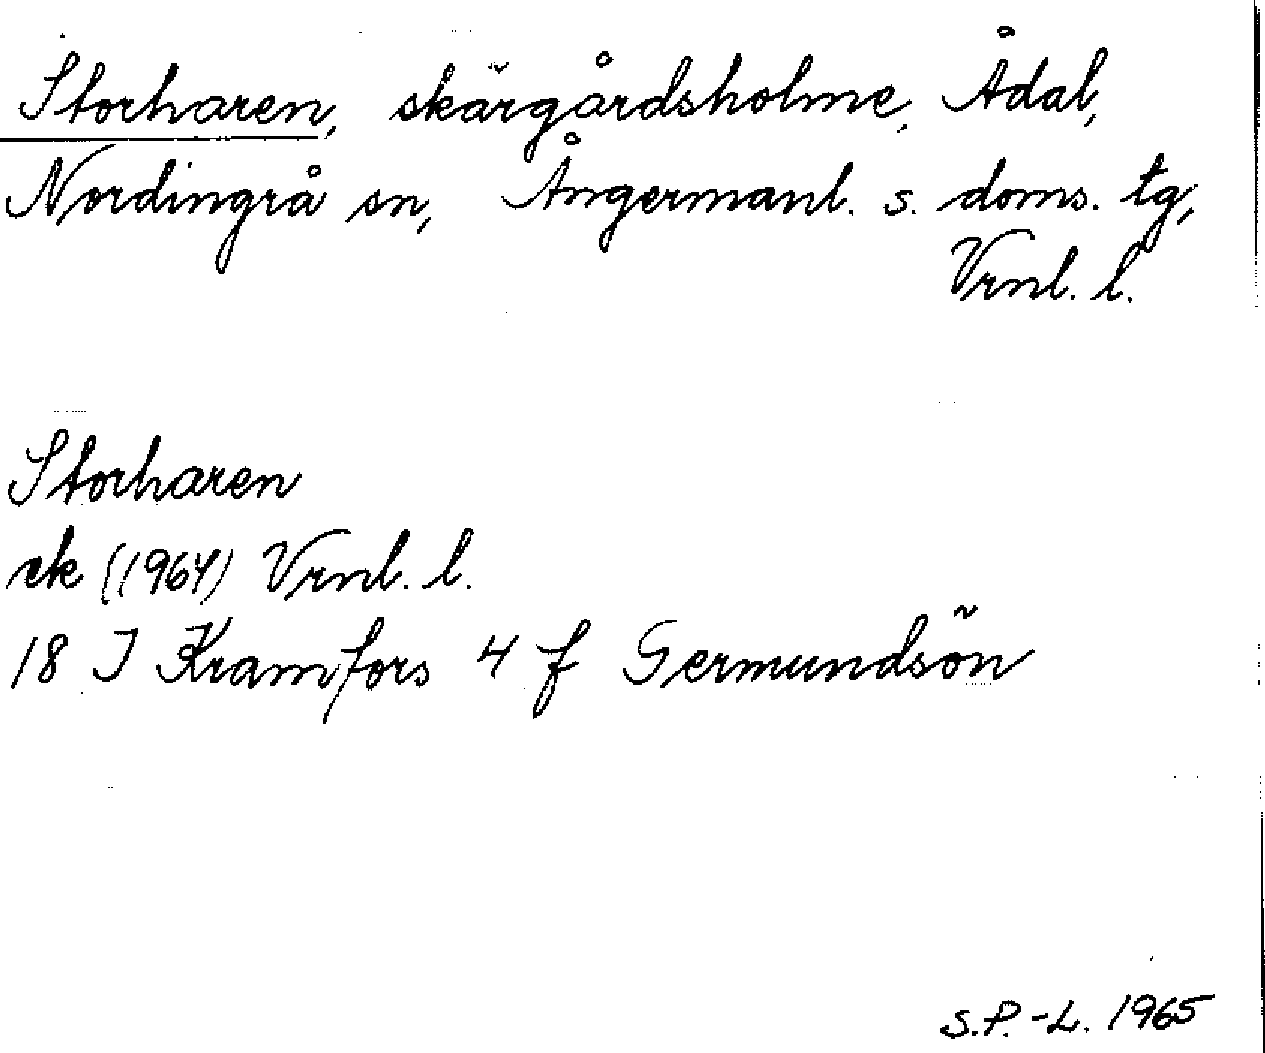 Storharen, skärgårdsholme, Ådal,
Nordingrå sn, Ångermanl. s. doms. tg,
Vrnl. l.
Storharen
ek (1964) Vrnl. l.
18 I Kramfors 4 f Germundsön
S.P.-L. 1965